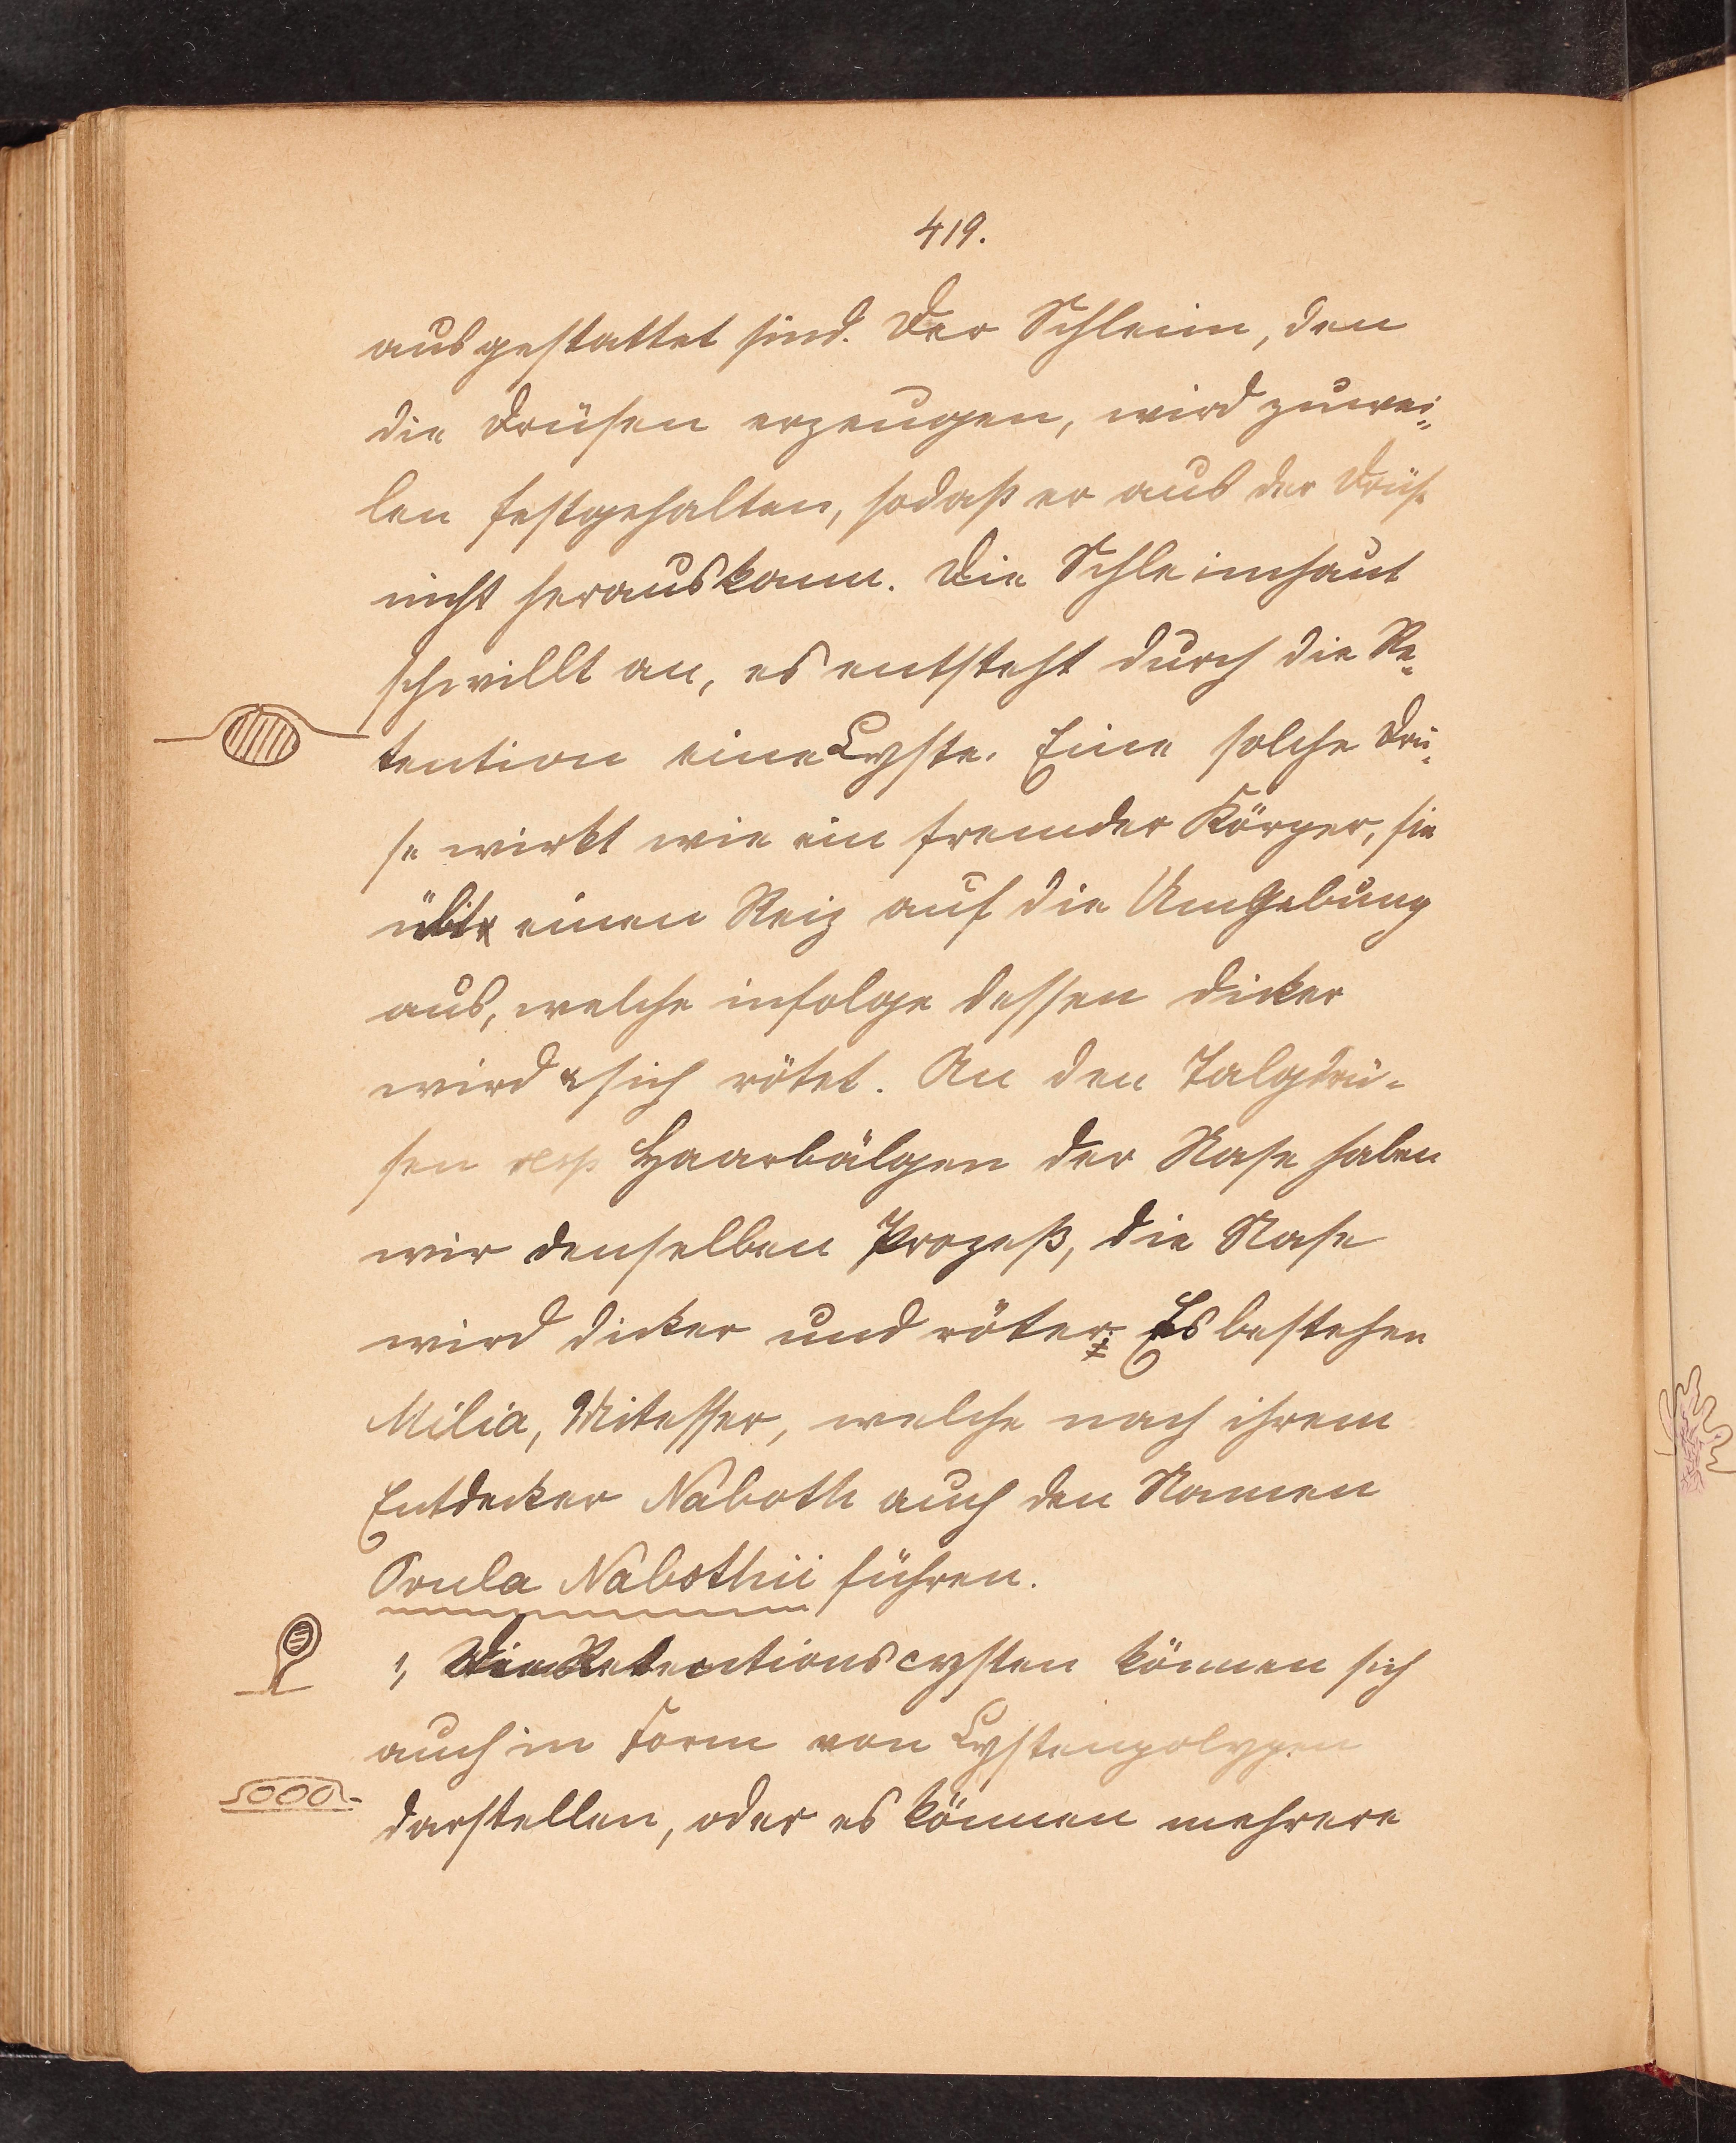 419.
ausgestattet sind. Der Schleim, den
die Drüsen erzeugen, wird zuwei-
len festgehalten, sodaß er aus der Drüse
nicht herauskann. Die Schleimhaut
schwillt an, es entsteht durch die Re-
tention eine Cyste. Eine solche Drü-
se wirkt wie ein fremder Körper, sie
übt einen Reiz auf die Umgebung
aus, welche infolge dessen dicker
wird & sich rötet. An den Talgdrü-
sen resp Haarbälgen der Nase haben
wir denselben Prozeß, die Nase
wird dicker und röter. Es bestehen
Milia, Mitesser, welche nach ihrem
Entdecker Naboth auch den Namen
Ovula Nabothii führen.
Die Retentionscysten können sich
auch in Form von Cystenpolypen
darstellen, oder es können mehrere